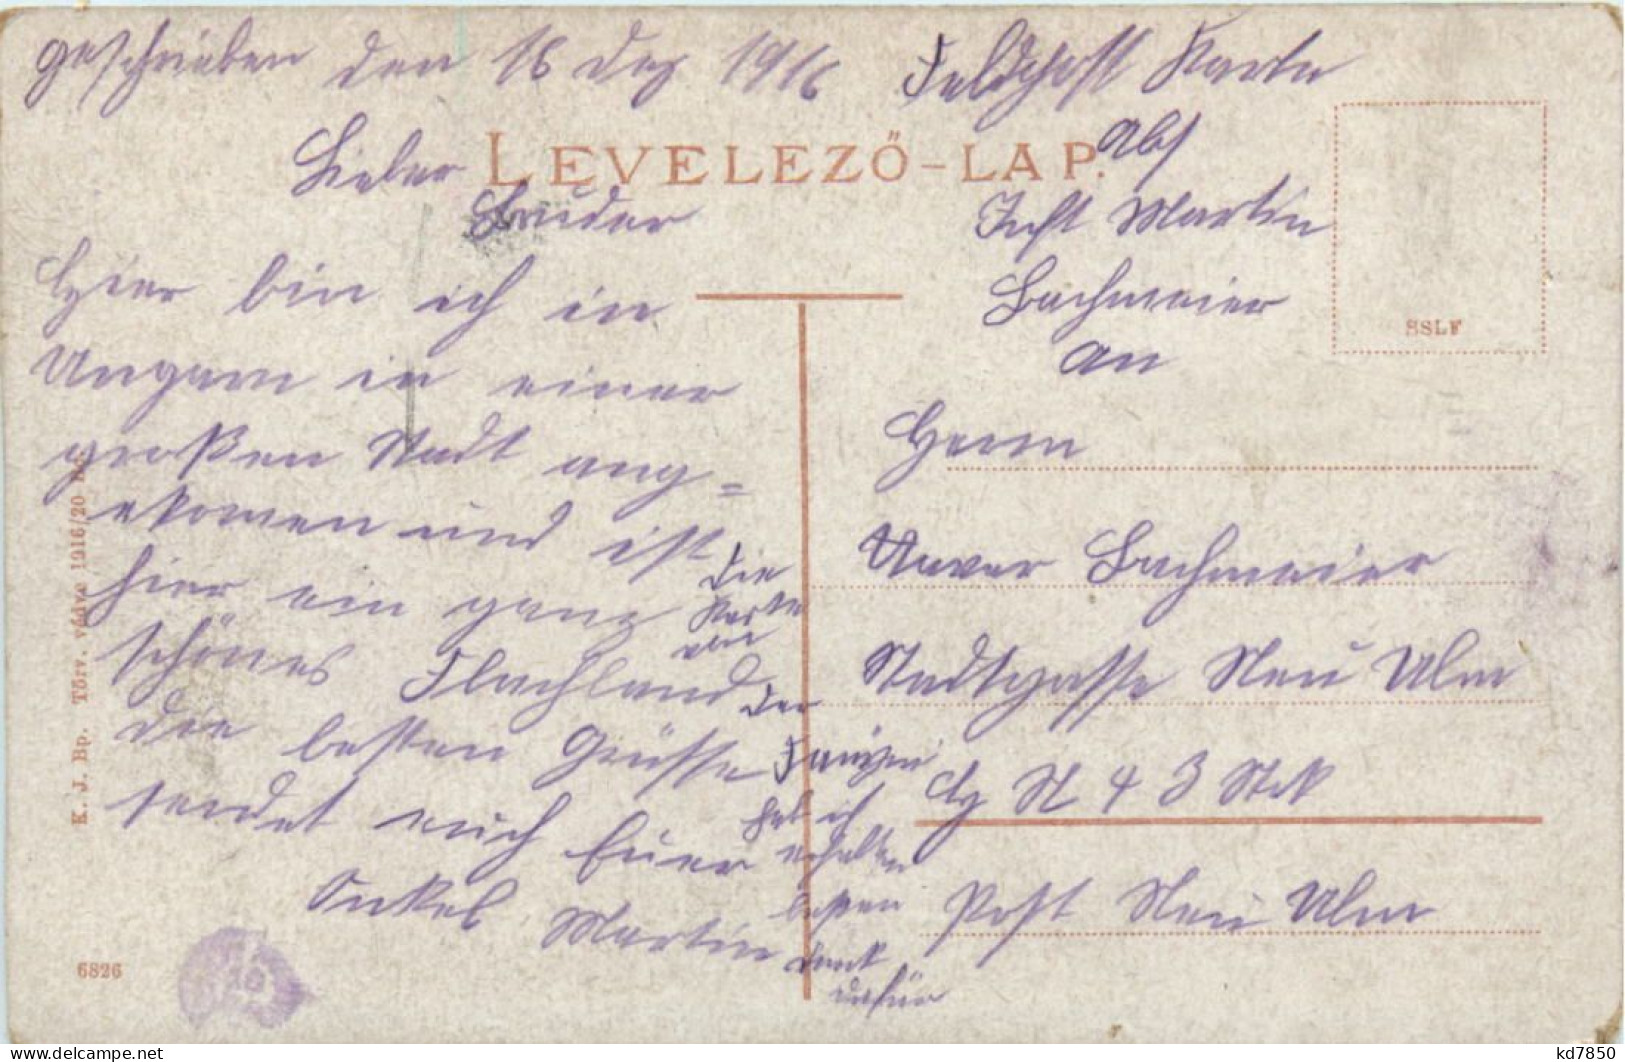 geschrieben den 18 Dez 1916
Feldpost Karte
LEVELEZŐ-LAP.
Abs
Lieber
Bruder
Martin
Bachmeier
An
SSLF
Hier bin ich in
Ungarn in einer
großen Stadt ang=
ekomen und ist
hier ein ganz
schönes Flachland
die besten Grüsse
sendet euch Euer
Onkel Martin
Die
Karte
von
der
hab ich
erhalten
besten
Dank
dafür
Herrn
Xaver Bachmeier
Stadtgasse Neu Ulm
N 4 3 Stck
Post Neu Ulm
K. J. Bp. Törv. védve 1916/20
6826
kd7850